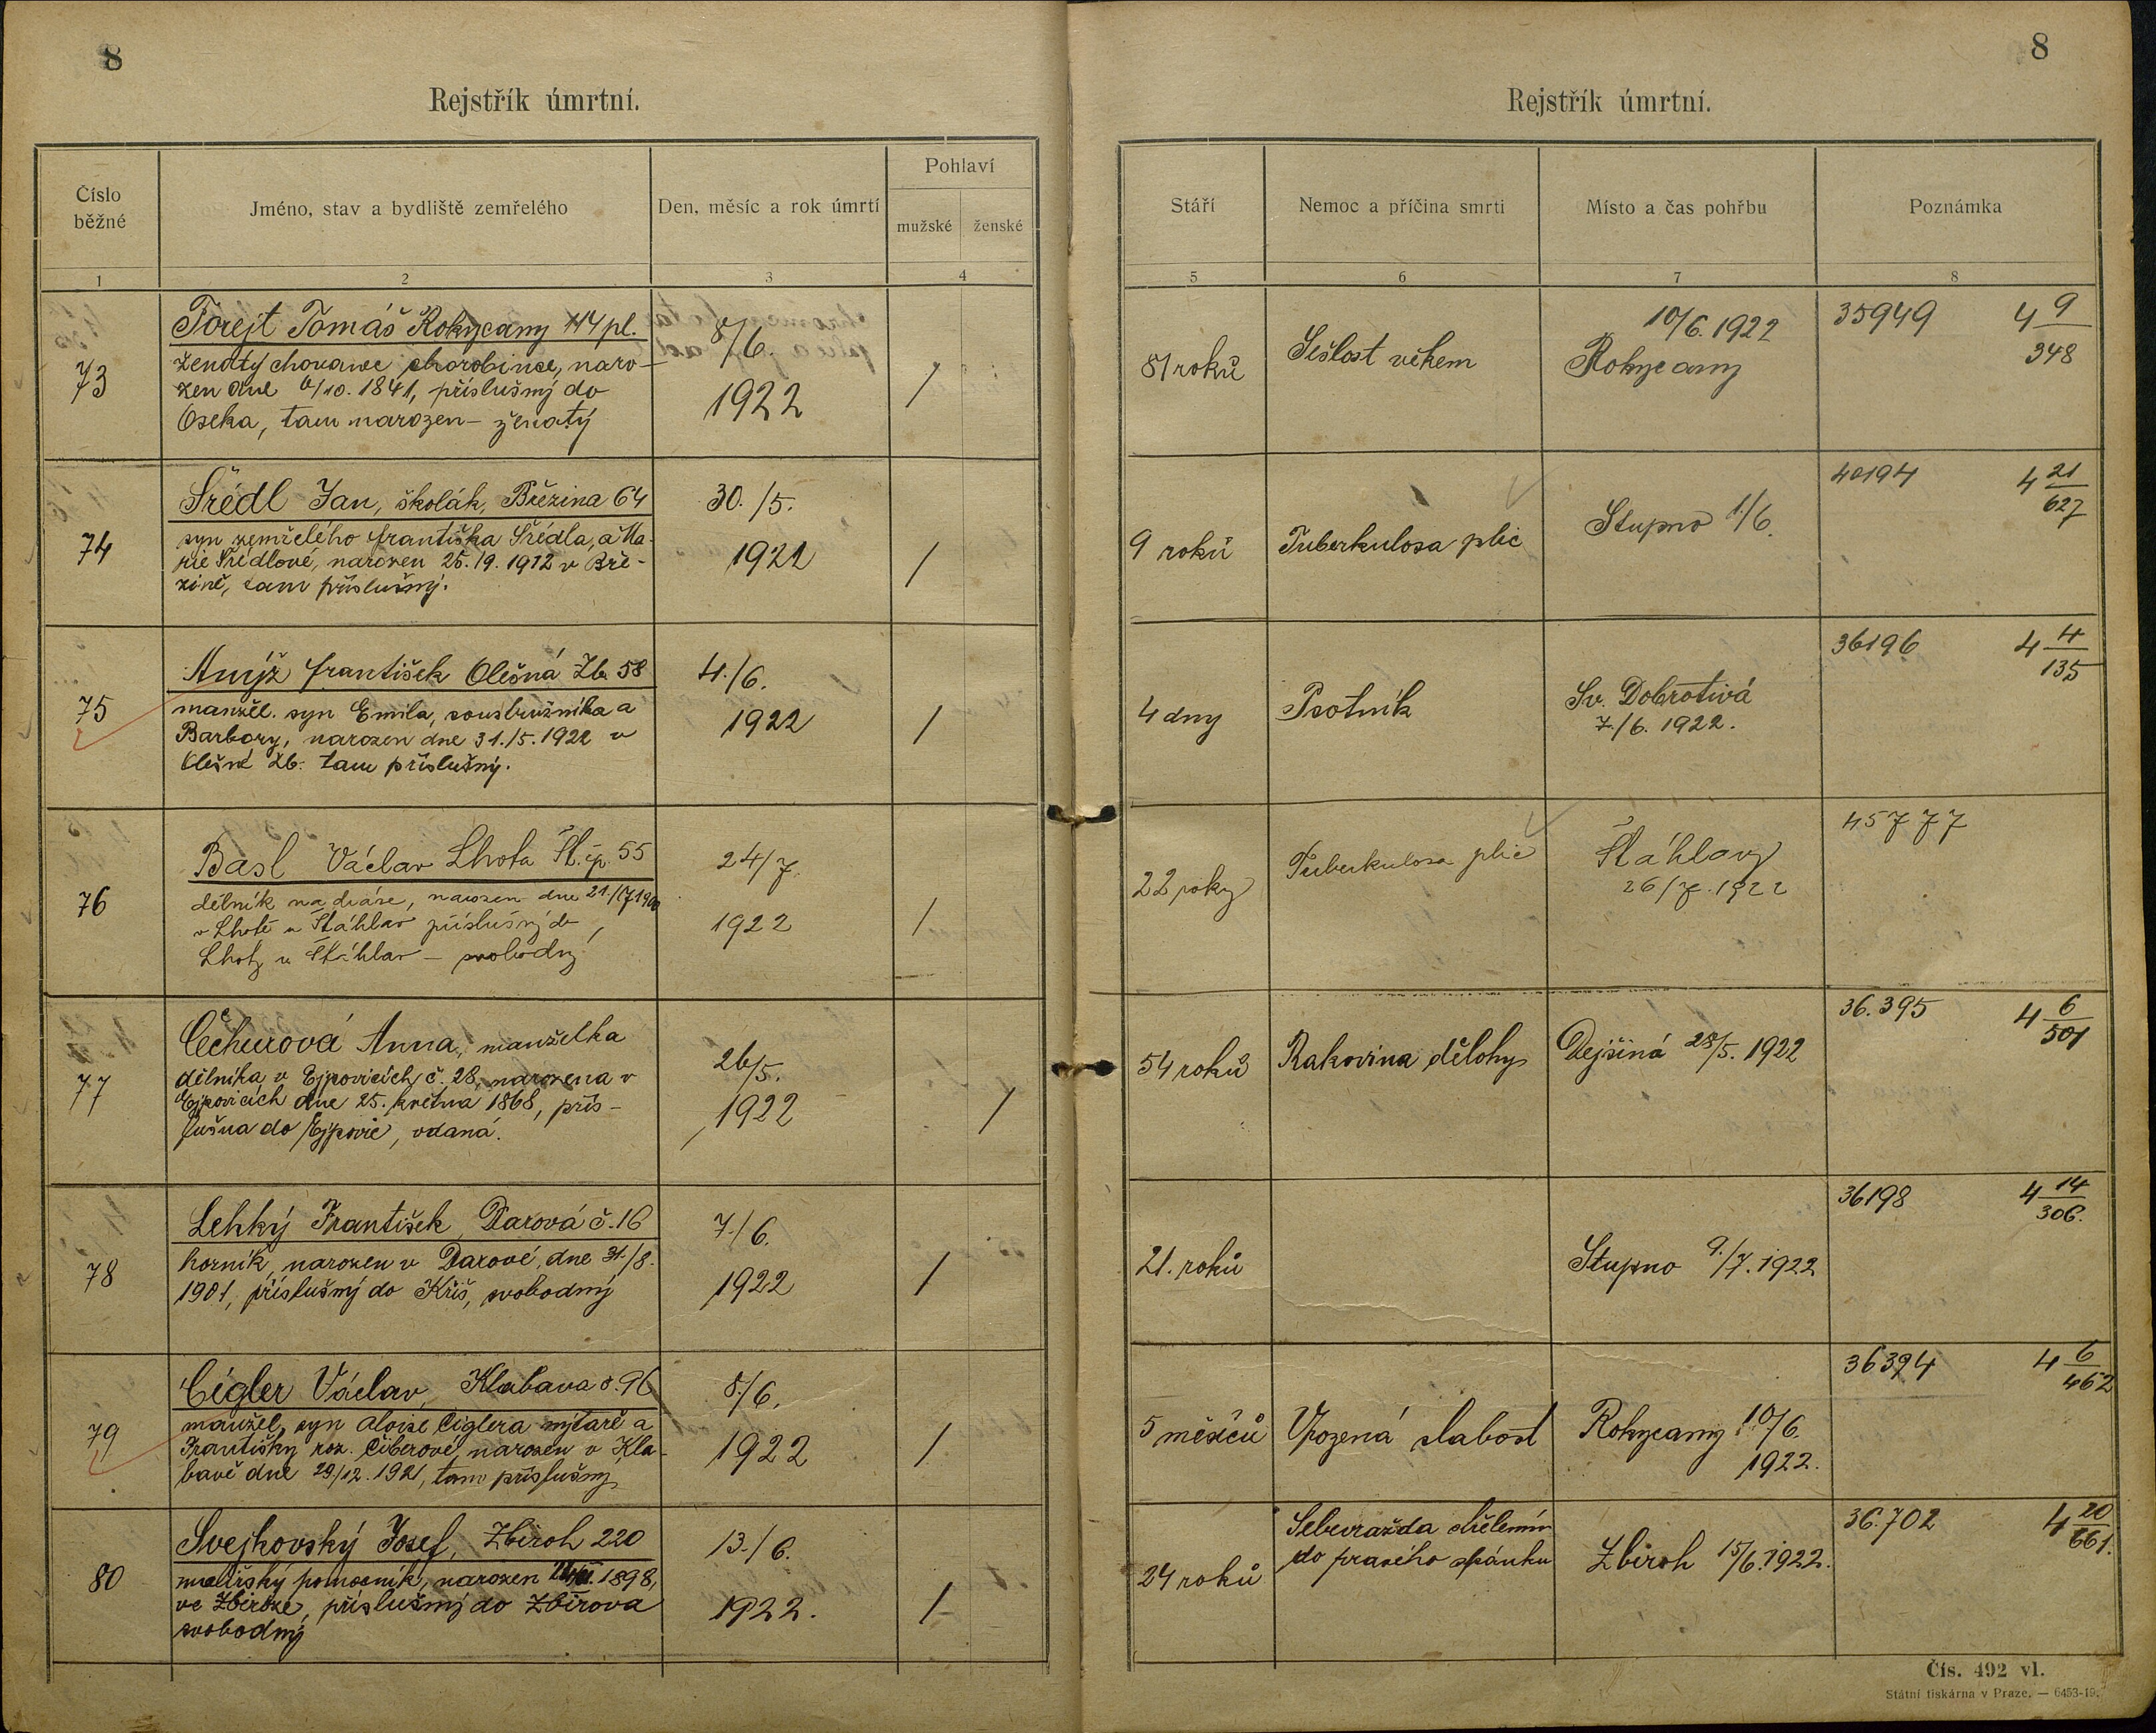 8
Rejstřík úmrtní.
Číslo běžné
Jméno, stav a bydliště zemřelého
Den, měsíc a rok úmrtí
Pohlaví
mužské
ženské
1
2
3
4
73
Tomáš Rokycany
chovanec chorobince, naro-
zen dne 6/10. 1841, příslušný do
Oseka, tam narozen - ženatý
8/6.
1922
/
74
Šrédl Jan, školák, Březina 64
syn zemřelého Františka Šrédla, a Ma-
rie Šrédlové, narozen 25./9. 1912 v Bře-
zině, tam příslušný.
30./5.
1922
/
75
František Olešná Zb. 58
manžel. syn Emila, soustružníka a
Barbory, narozen dne 31./5. 1922 v
Olešné Zb. tam příslušný.
4./6.
1922
/
76
Basl Václav Lhota Šť. čp. 55
dělník na dráze, narozen dne 21./7 1900
v Lhotě u Šťáhlav příslušný do
Lhoty u Šťáhlav - svobodný
24/7.
1922
/
77
Čechurová Anna, manželka
dělníka v Ejpovicích č. 28, narozena v
Ejpovicích dne 25. května 1868, přís-
lušna do Ejpovic, vdaná.
26/5.
1922
/
78
Lehký František, Darová č. 16
horník, narozen v Darové, dne 31./8.
1901, příslušný do Kříš, svobodný
7./6.
1922
/
79
Cígler Václav, Klabava č. 96
manžel, syn Aloise Cíglera mýtaře a
Františky roz. Ciberové, narozen v Kla-
bavě dne 29./12. 1921, tam příslušný
8./6.
1922
/
80
Svejkovský Josef, Zbiroh 220
malířský pomocník, narozen 1898,
ve Zbiroze, příslušný do Zbirova
svobodný
13./6.
1922.
/
8
Rejstřík úmrtní.
Stáří
Nemoc a příčina smrti
Místo a čas pohřbu
Poznámka
5
6
7
8
81 roků
Sešlost věkem
10/6. 1922
Rokycany
35949
4 9/348
9 roků
Tuberkulosa plic
Stupno 1/6.
40194
4 21/627
4 dny
Psotník
Sv. Dobrotivá
7./6. 1922.
36196
4 4/135
22 roky
Tuberkulosa plic
Šťáhlavy
26/7. 1922
45777
54 roků
Rakovina dělohy
Dejšiná 28/5. 1922
36.395
4 6/501
21. roků
Stupno 9./7. 1922
36198
4 14/306.
5 měsíců
Vrozená slabost
Rokycany 10/6.
1922.
36394
4 6/462
24 roků
Sebevražda střelením
do pravého spánku
Zbiroh 15/6. 1922.
36.702
4 20/661.
Čís. 492 vl.
Státní tiskárna v Praze. — 6453-19.